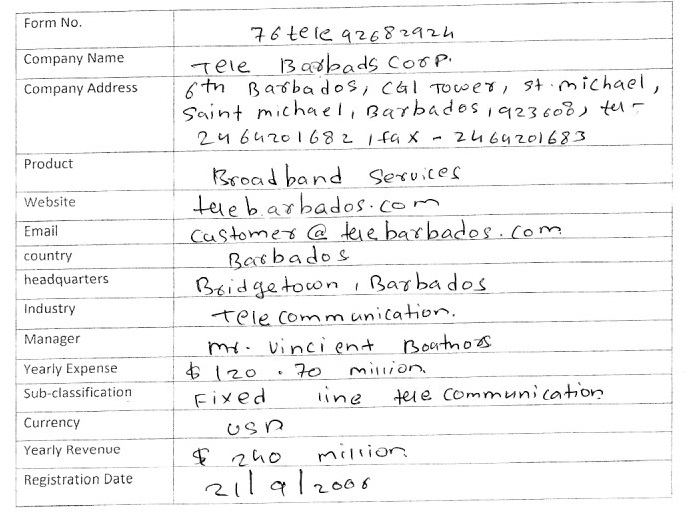 Form No. 76tele92682924
Company Name Tele Barbads Corp.
Company Address 6th Barbados, CGI Tower, st. michael,
Saint michael, Barbados, 923608, tel -
2464201682, fax - 2464201683
Product Broadband Services
Website telebarbados.com
Email customer@telebarbados.com
country Barbados
headquarters Bridgetown, Barbados
Industry Telecommunication.
Manager mr. vincient Boatnors
Yearly Expense $ 120.70 million
Sub-classification Fixed line telecommunication
Currency USD
Yearly Revenue $ 240 million
Registration Date 21/9/2006